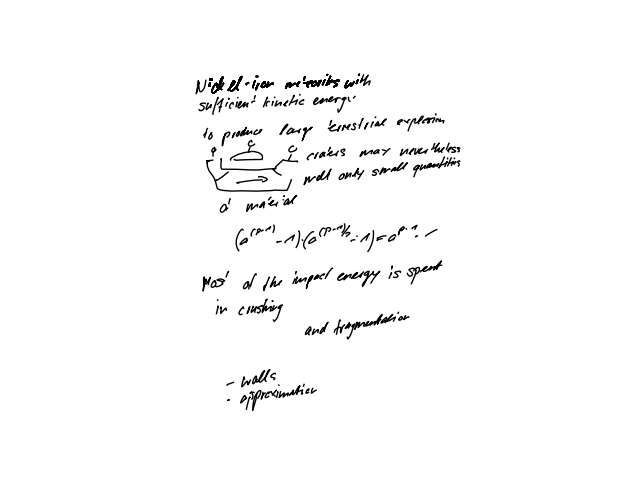 Nickel-iron meteorites with
sufficient kinetic energy
to produce large terrestrial explosion
craters may nevertheless
melt only small quantities
of material
(a^{(p-1)} - 1) \cdot (a^{(p-1)/2} - 1) = a^{p-1} \cdot -
Most of the impact energy is spent
in crushing
and fragmentation
- walls
- approximation